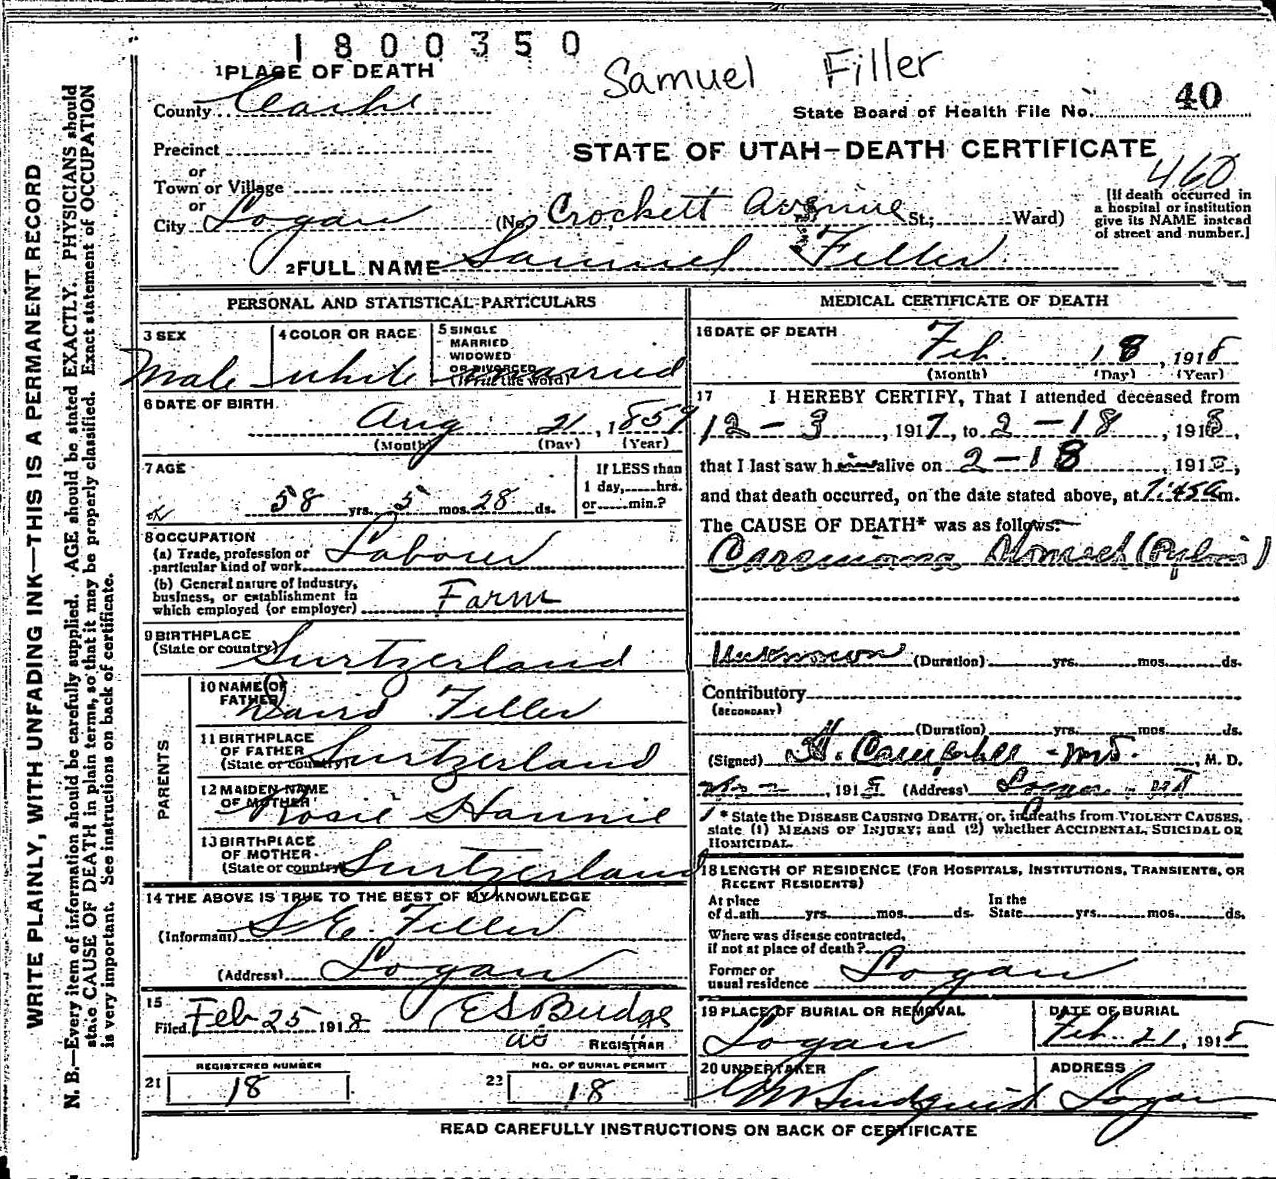 1800350
Samuel Filler
1 PLACE OF DEATH
County Cache
State Board of Health File No. 40
Precinct
STATE OF UTAH—DEATH CERTIFICATE
or
Town or Village
460
or
City Logan (No. Crockett Avenue St.; Ward)
[If death occurred in
a hospital or institution
give its NAME instead
of street and number.]
2 FULL NAME Samuel Filler
PERSONAL AND STATISTICAL PARTICULARS
3 SEX
Male
4 COLOR OR RACE
white
5 SINGLE
MARRIED
WIDOWED
OR DIVORCED
(Write the word)
married
6 DATE OF BIRTH
Aug 21, 1859
(Month) (Day) (Year)
7 AGE
58 yrs. 5 mos. 28 ds.
If LESS than
1 day, hrs.
or min.?
8 OCCUPATION
(a) Trade, profession or
particular kind of work Laborer
(b) General nature of Industry,
business, or establishment in
which employed (or employer) Farm
9 BIRTHPLACE
(State or country)
Surtzerland
PARENTS
10 NAME OF
FATHER
David Filler
11 BIRTHPLACE
OF FATHER
(State or country) Surtzerland
12 MAIDEN NAME
OF MOTHER
Rosie Hannie
13 BIRTHPLACE
OF MOTHER
(State or country) Surtzerland
14 THE ABOVE IS TRUE TO THE BEST OF MY KNOWLEDGE
(Informant) S E. Filler
(Address) Logan
15
Filed Feb 25 1918 E S Budge
REGISTRAR
21
REGISTERED NUMBER
18
22
NO. OF BURIAL PERMIT
18
MEDICAL CERTIFICATE OF DEATH
16 DATE OF DEATH
Feb. 18, 1918
(Month) (Day) (Year)
17 I HEREBY CERTIFY, That I attended deceased from
12-3, 1917, to 2-18, 1918,
that I last saw him alive on 2-18, 1918,
and that death occurred, on the date stated above, at 7:45a m.
The CAUSE OF DEATH* was as follows:
Carcinoma Stomach (Pyloric)
Unknown (Duration) yrs. mos. ds.
Contributory
(SECONDARY)
(Duration) yrs. mos. ds.
(Signed) , M. D.
, 191 (Address) Logan Ut
* State the DISEASE CAUSING DEATH, or, in deaths from VIOLENT CAUSES,
state (1) MEANS OF INJURY; and (2) whether ACCIDENTAL, SUICIDAL OR
HOMICIDAL.
18 LENGTH OF RESIDENCE (FOR HOSPITALS, INSTITUTIONS, TRANSIENTS, OR
RECENT RESIDENTS)
At place
of death yrs. mos. ds.
In the
State yrs. mos. ds.
Where was disease contracted,
if not at place of death?
Former or
usual residence Logan
19 PLACE OF BURIAL OR REMOVAL
Logan
DATE OF BURIAL
Feb. 21, 1918
20 UNDERTAKER
Lindquist
ADDRESS
Logan
READ CAREFULLY INSTRUCTIONS ON BACK OF CERTIFICATE
WRITE PLAINLY, WITH UNFADING INK—THIS IS A PERMANENT RECORD
N. B.—Every item of information should be carefully supplied. AGE should be stated EXACTLY. PHYSICIANS should
state CAUSE OF DEATH in plain terms, so that it may be properly classified. Exact statement of OCCUPATION
is very important. See instructions on back of certificate.